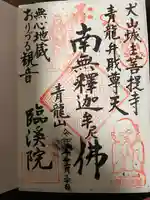 犬山城主菩提寺
青龍弁財尊天
南無釋迦牟尼佛
青龍山
無心地蔵
おりづる観音
臨溪院